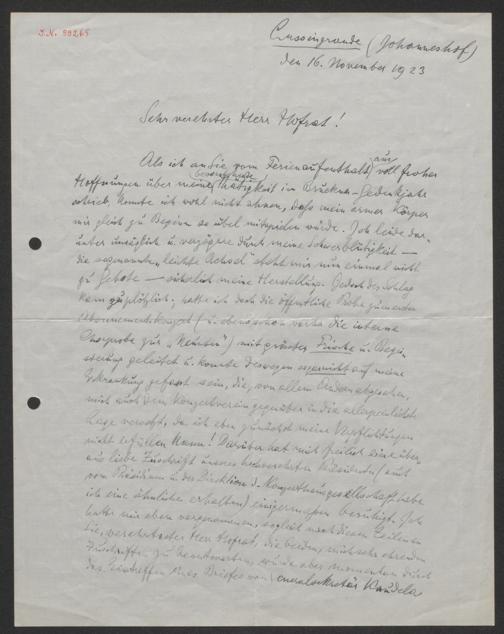 J.N. 99265
(Johanneshof)
den 16. November 1923
Sehr verehrter Herr Hofrat!
Als ich an Sie vom Ferienaufenthalt aus voll froher
bevorstehende
Hoffnungen über meine Tätigkeit im Bruckner-Gedenkjahr
schrieb, konnte ich wohl nicht ahnen, dass mein armer Körper
mir gleich zu Beginn so übel mitspielen würde. Ich leide dar-
unter unsäglich u. verzögere durch meine Schwerblütigkeit —
die sogenannte „leichte Achsel" steht mir nun einmal nicht
zu Gebote — meine Herstellung. Der Schlag
kam zu plötzlich; hatte ich doch die öffentliche Probe zum ersten
Abonnementskonzert (u. ebenso schon vorher die interne
Chorprobe zur) mit grösster Frische u. Begei-
sterung geleitet u. konnte deswegen auf meine
Erkrankung gefasst sein, die, von allem Andern abgesehen,
mich auch dem Konzertverein gegenüber in die allerpeinlichste
Lage versetzt, da ich eben zunächst meine Verpflichtungen
nicht erfüllen kann! Darüber hat mich freilich eine über-
aus liebe Zuschrift unseres hochverehrten Präsidenten (auch
vom Präsidium u. der Direktion d. Konzerthausgesellschaft habe
ich eine ähnliche erhalten) einigermassen beruhigt. Ich
hatte mir eben vorgenommen, sogleich nach diesen Zeilen an
Sie, verehrtester Herr Hofrat, die beiden, mich sehr ehrenden
Zuschriften zu beantworten, wurde aber momentan durch
das Eintreffen eines Briefes von